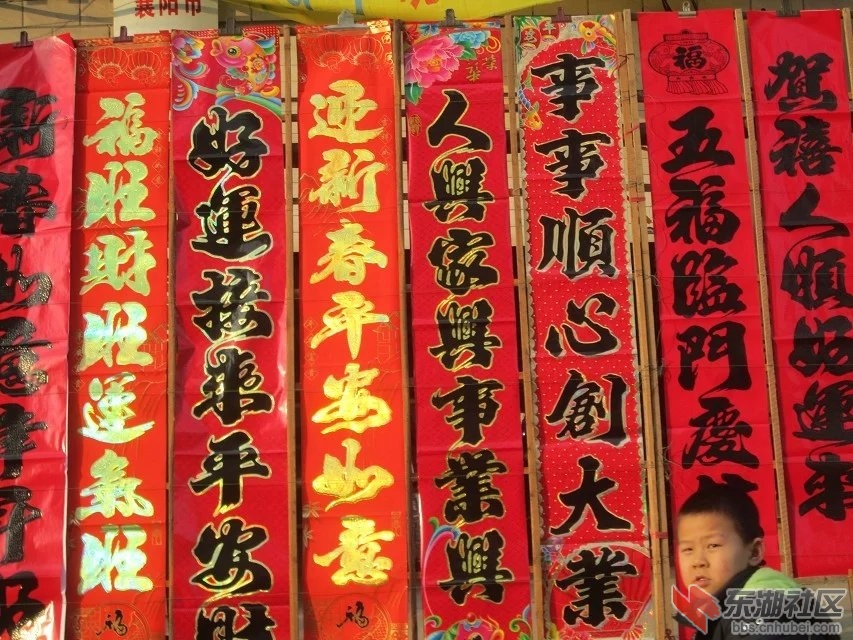 襄阳市
新春如意
福旺財旺運氣旺
福
好運接來平安財
迎新春平安如意
福
人興家興事業興
事事順心創大業
福
五福臨門慶
賀禧人順好運來
东湖社区
bbs.cnhubei.com